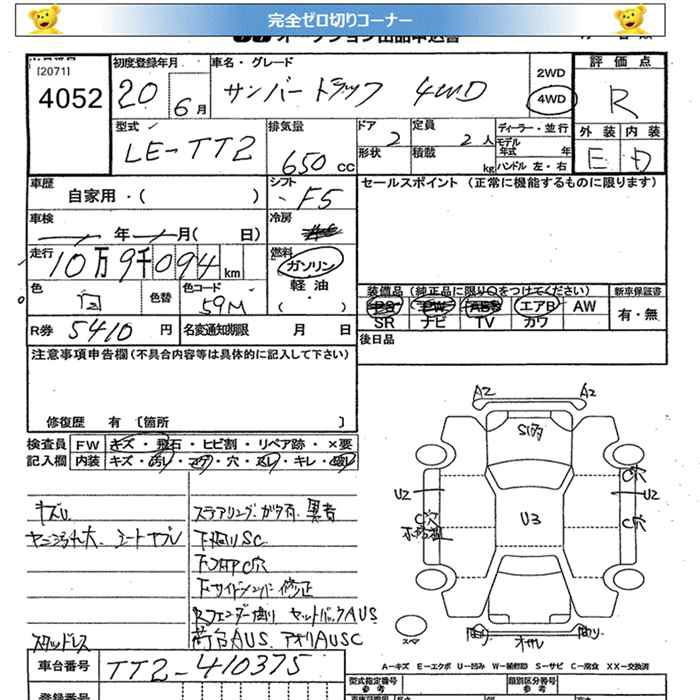 完全ゼロ切りコーナー
[2071]
4052
初度登録年月
20 6月
車名・グレード
サンバートラック 4WD
2WD
4WD
評価点
R
外装 内装
E D
型式
LE-TT2
排気量
650 CC
ドア 2
形状
定員 2人
積載 kg
ディーラー・並行
モデル年式 年
ハンドル 左・右
車歴
自家用・( )
シフト
F5
セールスポイント (正常に機能するものに限ります)
車検
年 月( 日)
冷房
走行
10万9千094 km
燃料
ガソリン
軽油
・( )
色
白
色替
色コード
59M
装備品 (純正品に限り○をつけてください)
PS PW ABS エアB AW
SR ナビ TV カワ
新車保証書
有・無
R券 5410 円
名変通知期限 月 日
後日品
注意事項申告欄(不具合内容等は具体的に記入して下さい)
修復歴 有 [箇所 ]
検査員
記入欄
FW キズ・飛石・ヒビ割・リペア跡・×要
内装 キズ・汚レ・コゲ・穴・スレ・キレ・破レ
キズU
ヤニヨゴレ大 シートヤブレ
スタッドレス
ステアリングガタ有 異音
下廻りSC
下フロアC穴
下サイドメンバー修正
Rフェンダー曲り セットバックAUS
荷台AUS アオリAUSC
A2 A2
U2 U2
U3
C穴
C穴
C穴
スペア
曲り 曲り
A=キズ E=エクボ U=凹み W=補修跡 S=サビ C=腐食 XX=交換済
車台番号
TT2-410375
登録番号
型式指定番号
参考
類別区分番号
参考